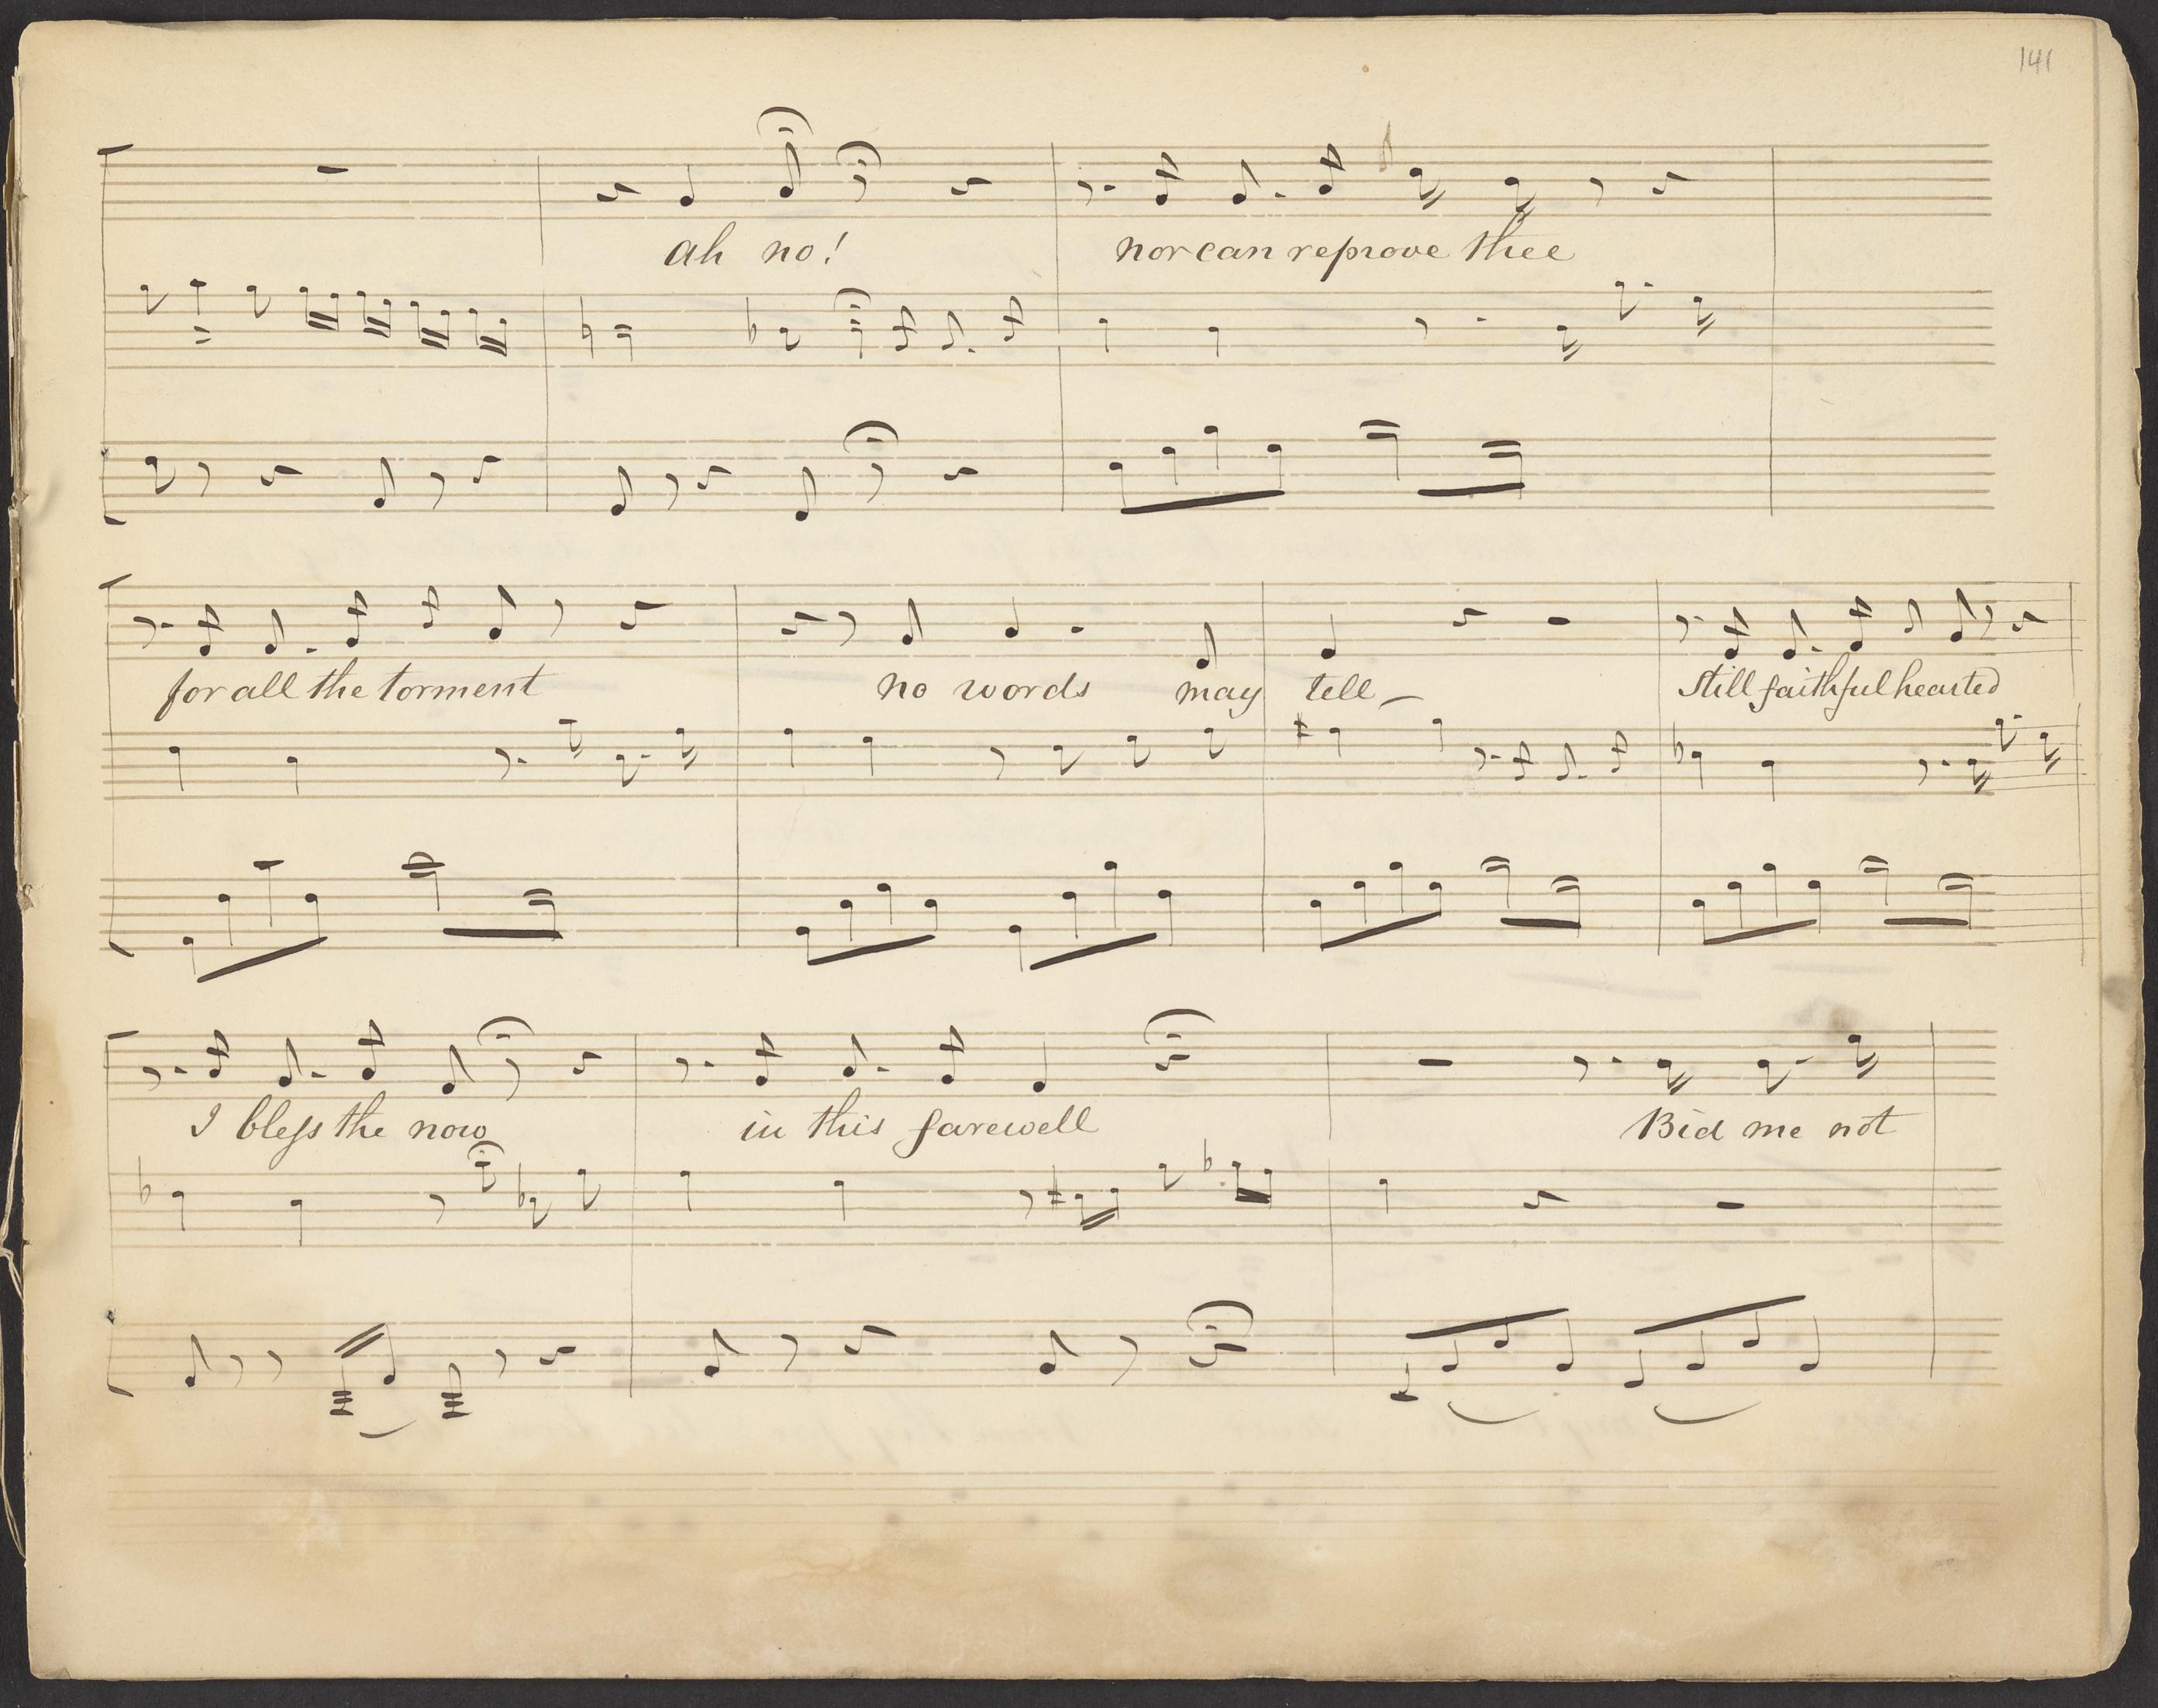 141
ah no! nor can reprove thee
for all the torment no words may tell — Still faithful hearted
I bless the now in this farewell Bid me not